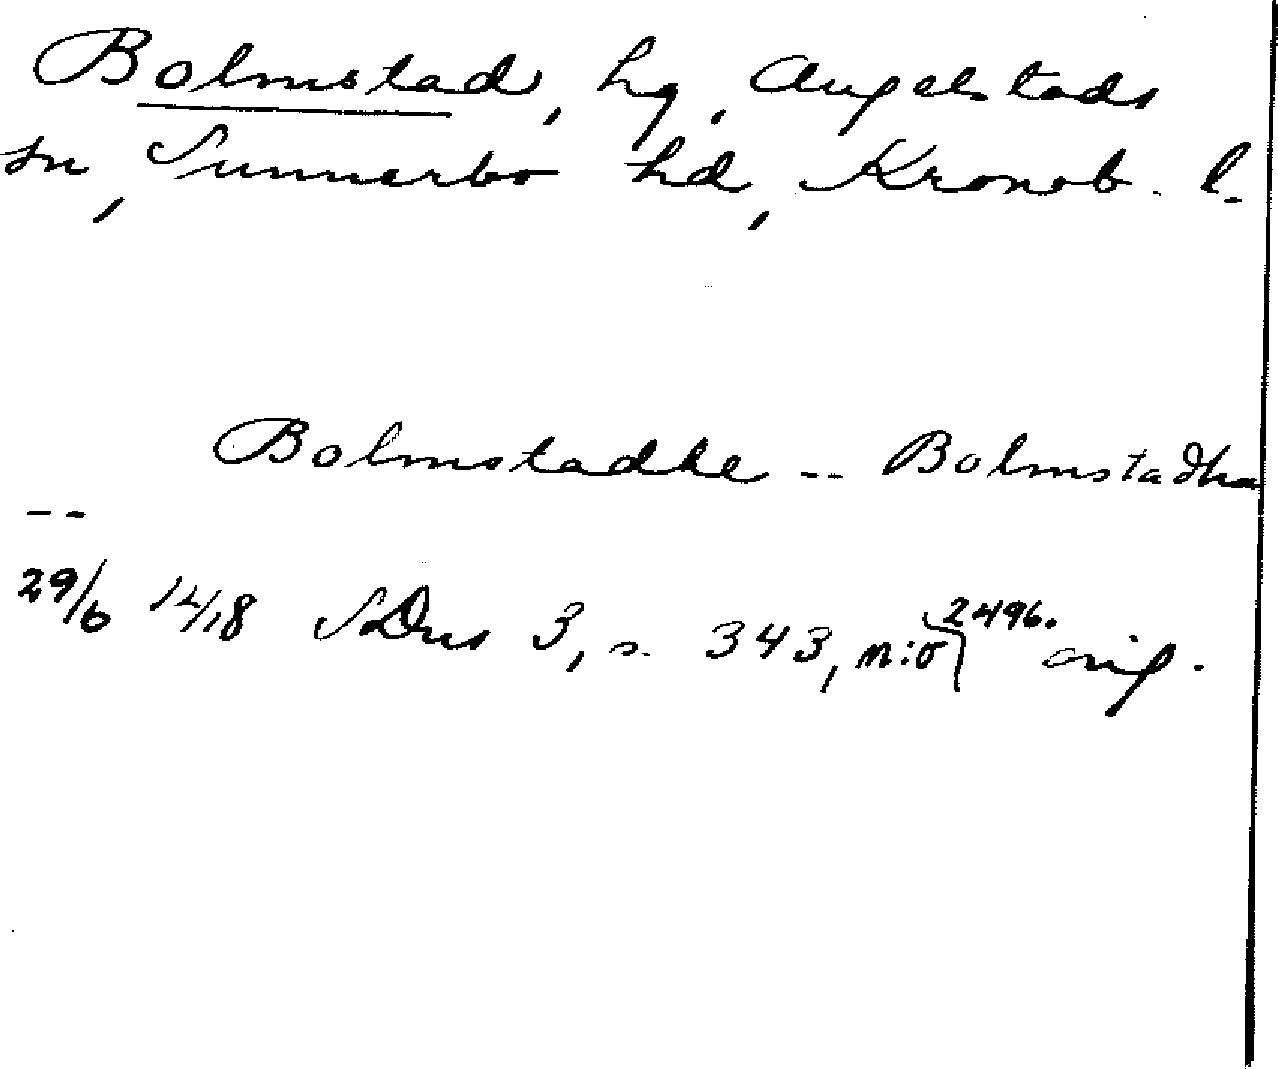 Bolmstad, hg, Angelstads
sn, Sunnerbo hd, Kronob. l.
Bolmstadhe -- Bolmstadha
--
29/6 1418 SvDns 3, s. 343, n:o 2496. orig.